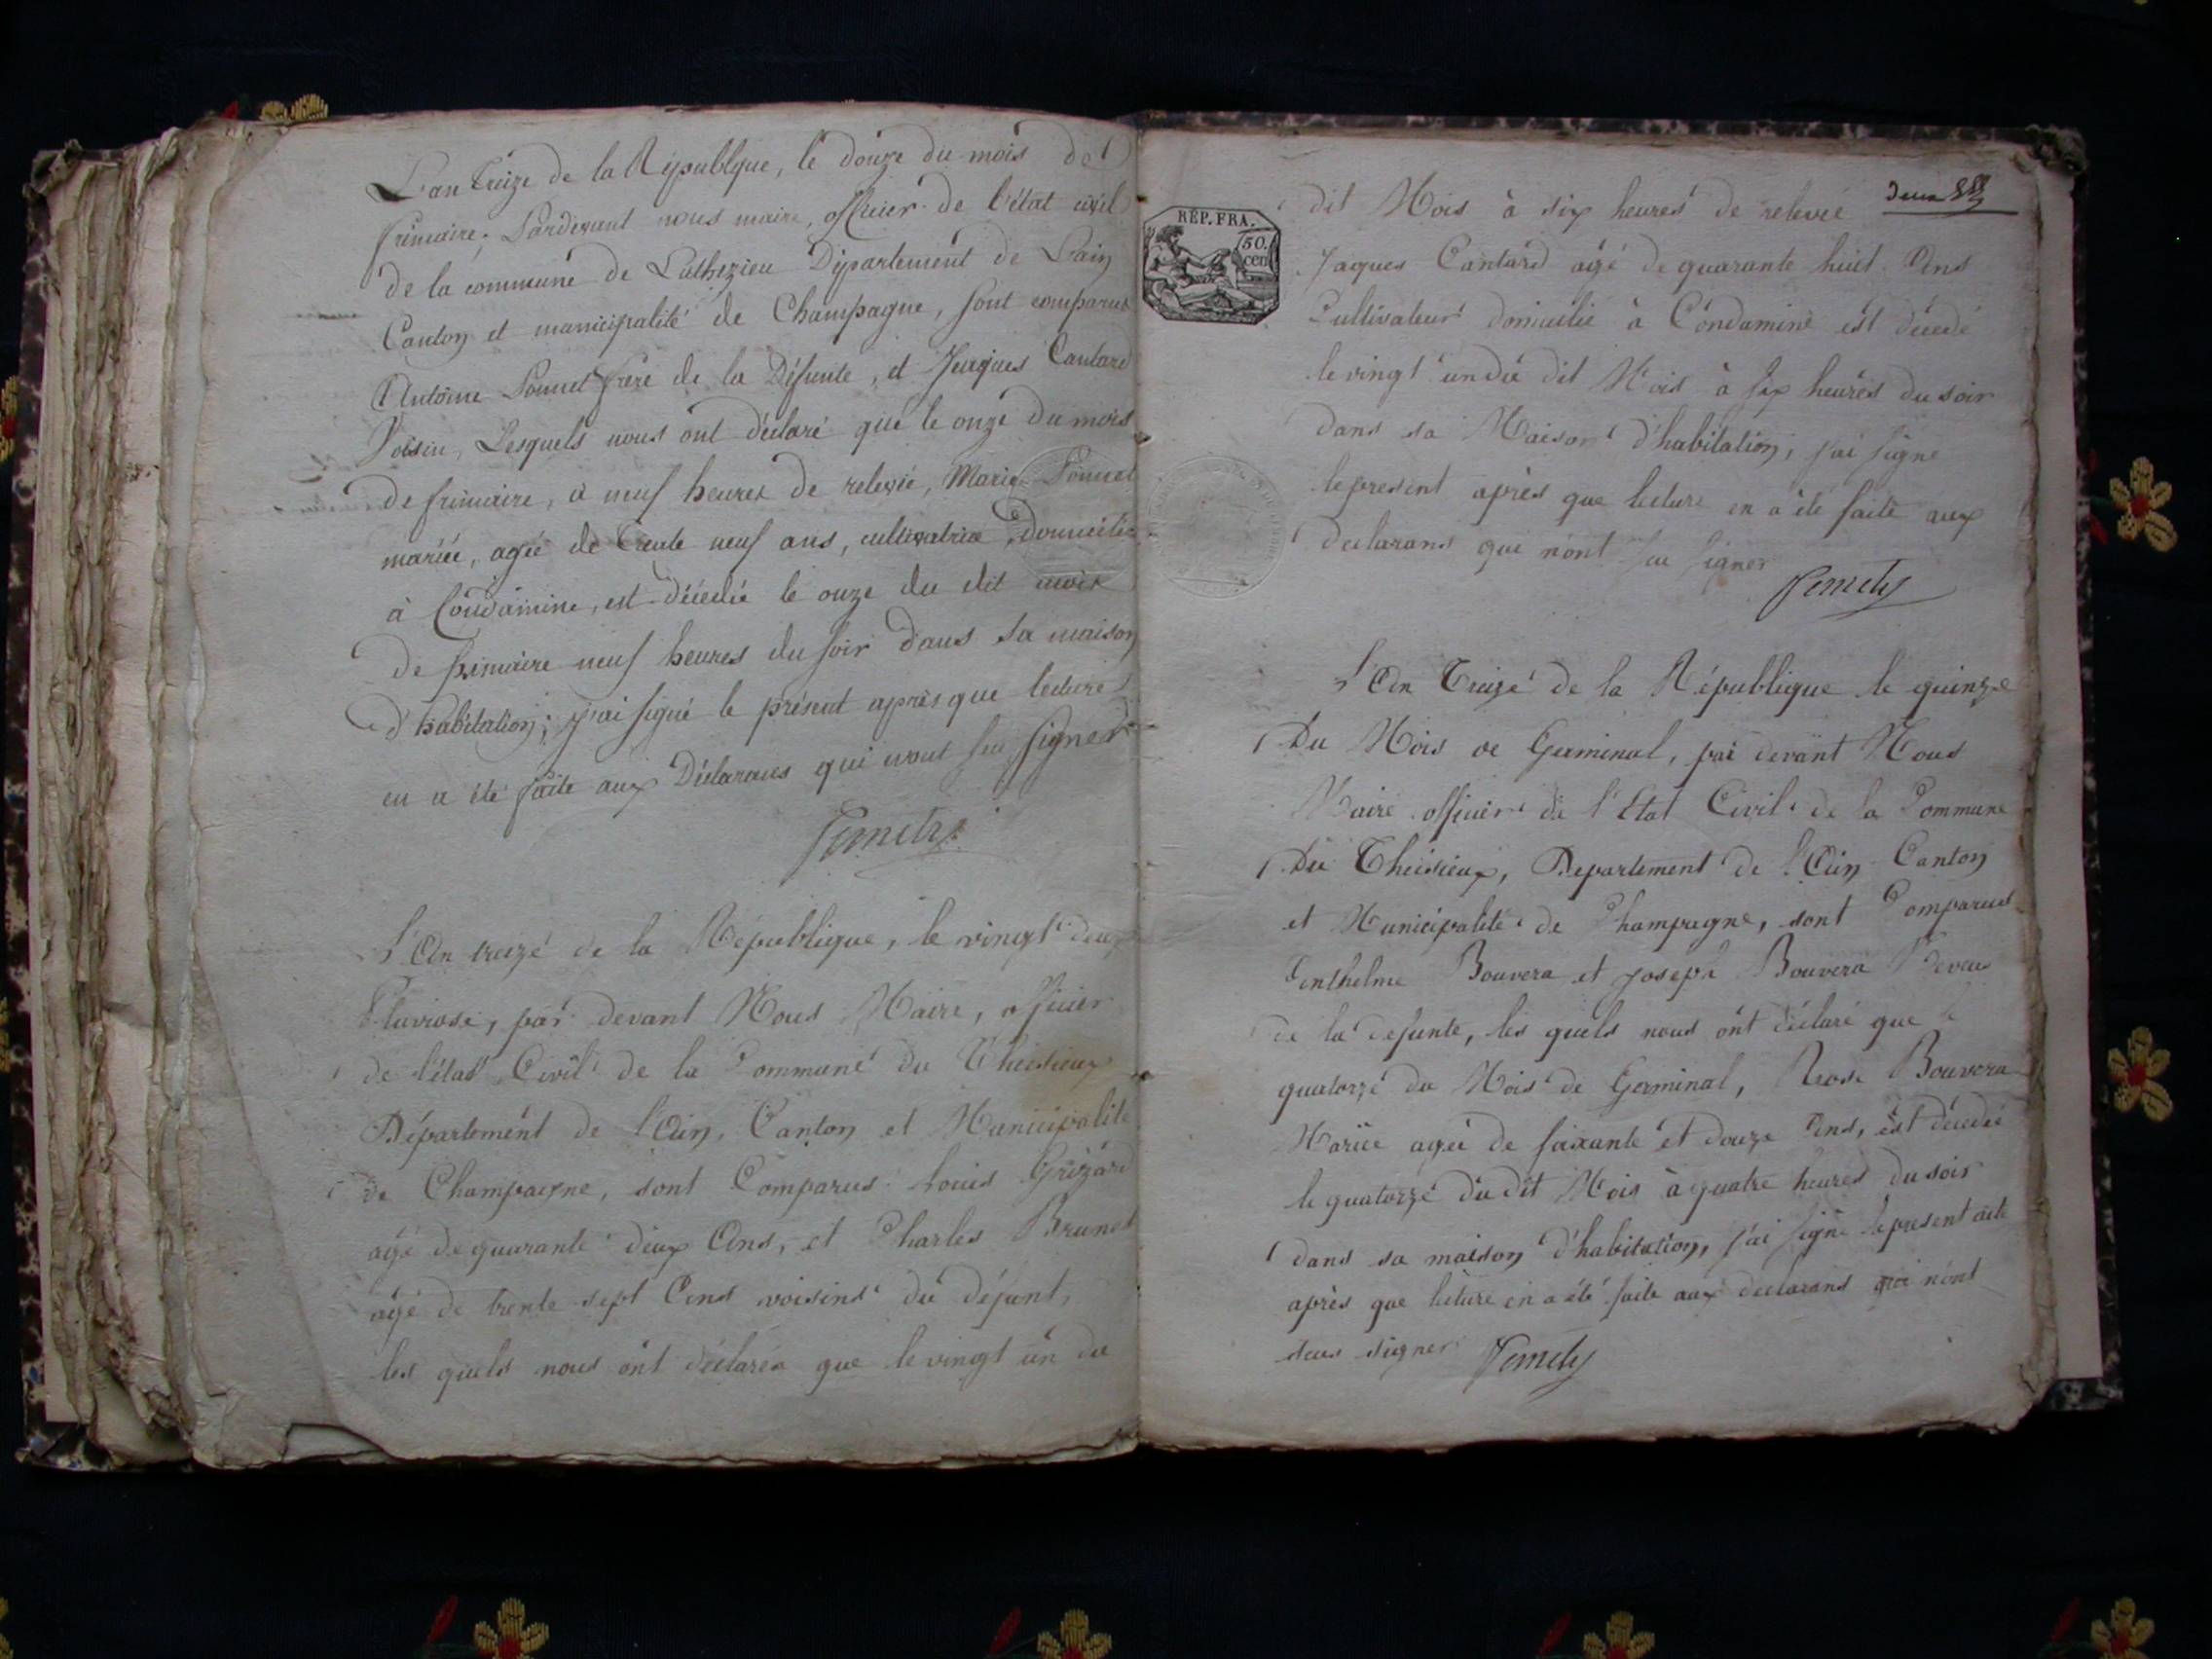 L'an treize de la République, le douze du mois de
frimaire. Pardevant nous maire, officier de l'état civil
de la commune de Luthezieu Département de Lain
Canton et municipalité de Champagne, sont comparus
Antoine Ponnet frere de la Défunte, et Jacques Cantard
Voisin, Lesquels nous ont déclaré que le onze du mois
de frimaire, à neuf heures de relevée, Marie Ponnet
mariée, agée de trente neuf ans, cultivatrice, domiciliée
à Condamine, est décédée le onze du dit mois
de frimaire neuf heures du soir dans sa maison
d'habitation; j'ai signé le présent après que lecture
en a été faite aux Déclarans qui n'ont su signer
L'An treizé de la République, le vingt deux
Pluviose, par devant Nous Maire, officier
de l'état Civil de la Commune Du Theisieux
Département de l'Ain, Canton et Municipalité
de Champagne, sont Comparus Louis Grizard
agé de quarante deux Ans, et Charles Brunet
agé de trente sept Ans voisins du défunt,
les quels nous ont déclarés que le vingt un du
RÉP. FRA.
50.
cen
dit Mois à six heures de relevée
Jaques Cantard agé de quarante huit Ans
Cultivateur domicilié à Condamine est décédé
le vingt un du dit Mois à six heures du soir
dans sa Maison d'habitation, j'ai signé
le present après que lecture en a été faite aux
declarans qui n'ont su signer
L'An Treizé de la République le quinze
Du Mois de Germinal, par devant Nous
Maire officier de l'Etat Civil de la Commune
Du Theisieux, Departement de l'Ain Canton
et Municipalité de Champagne, sont Comparus
Anthelme Bouvera et Joseph Bouvera Neveu
de la defunte, les quels nous ont déclaré que le
quatorze du Mois de Germinal, Rose Bouvera
Mariée agée de soixante et douze Ans, est décédée
le quatorzé du dit Mois à quatre heures du soir
dans sa maison d'habitation, j'ai signé le present acte
après que lecture en a été faite aux declarans qui n'ont
seus signer